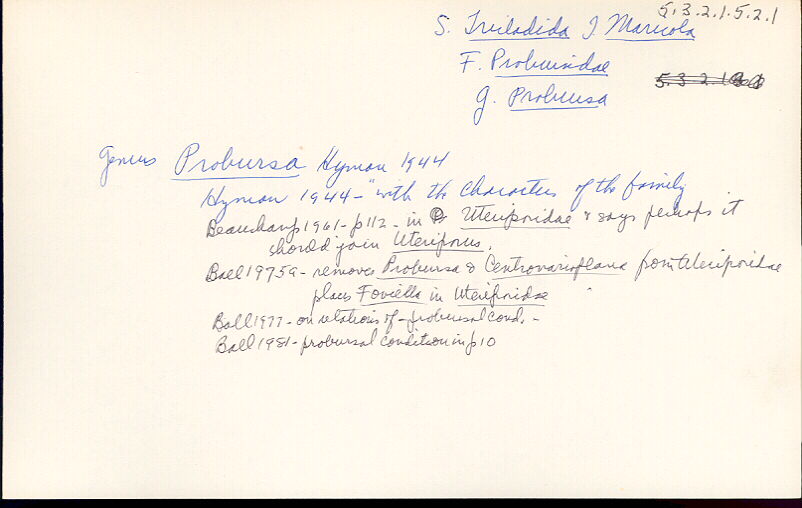 5.3.2.1.5.2.1
S. Tricladida I Maricola
F. Probursidae
G. Probursa
5.3.2.1
Genus Probursa Hyman 1944
Hyman 1944 - "with the characters of the family
Beauchamp 1961 - p112 - in Uteriporidae & says perhaps it
should join Uteriporus.
Ball 1975a - removes Probursa & Centrovarioplana from Uteriporidae
places Foviella in Uteriporidae
Ball 1977 - on relations of - probursal cond. -
Ball 1981 - probursal condition in p10